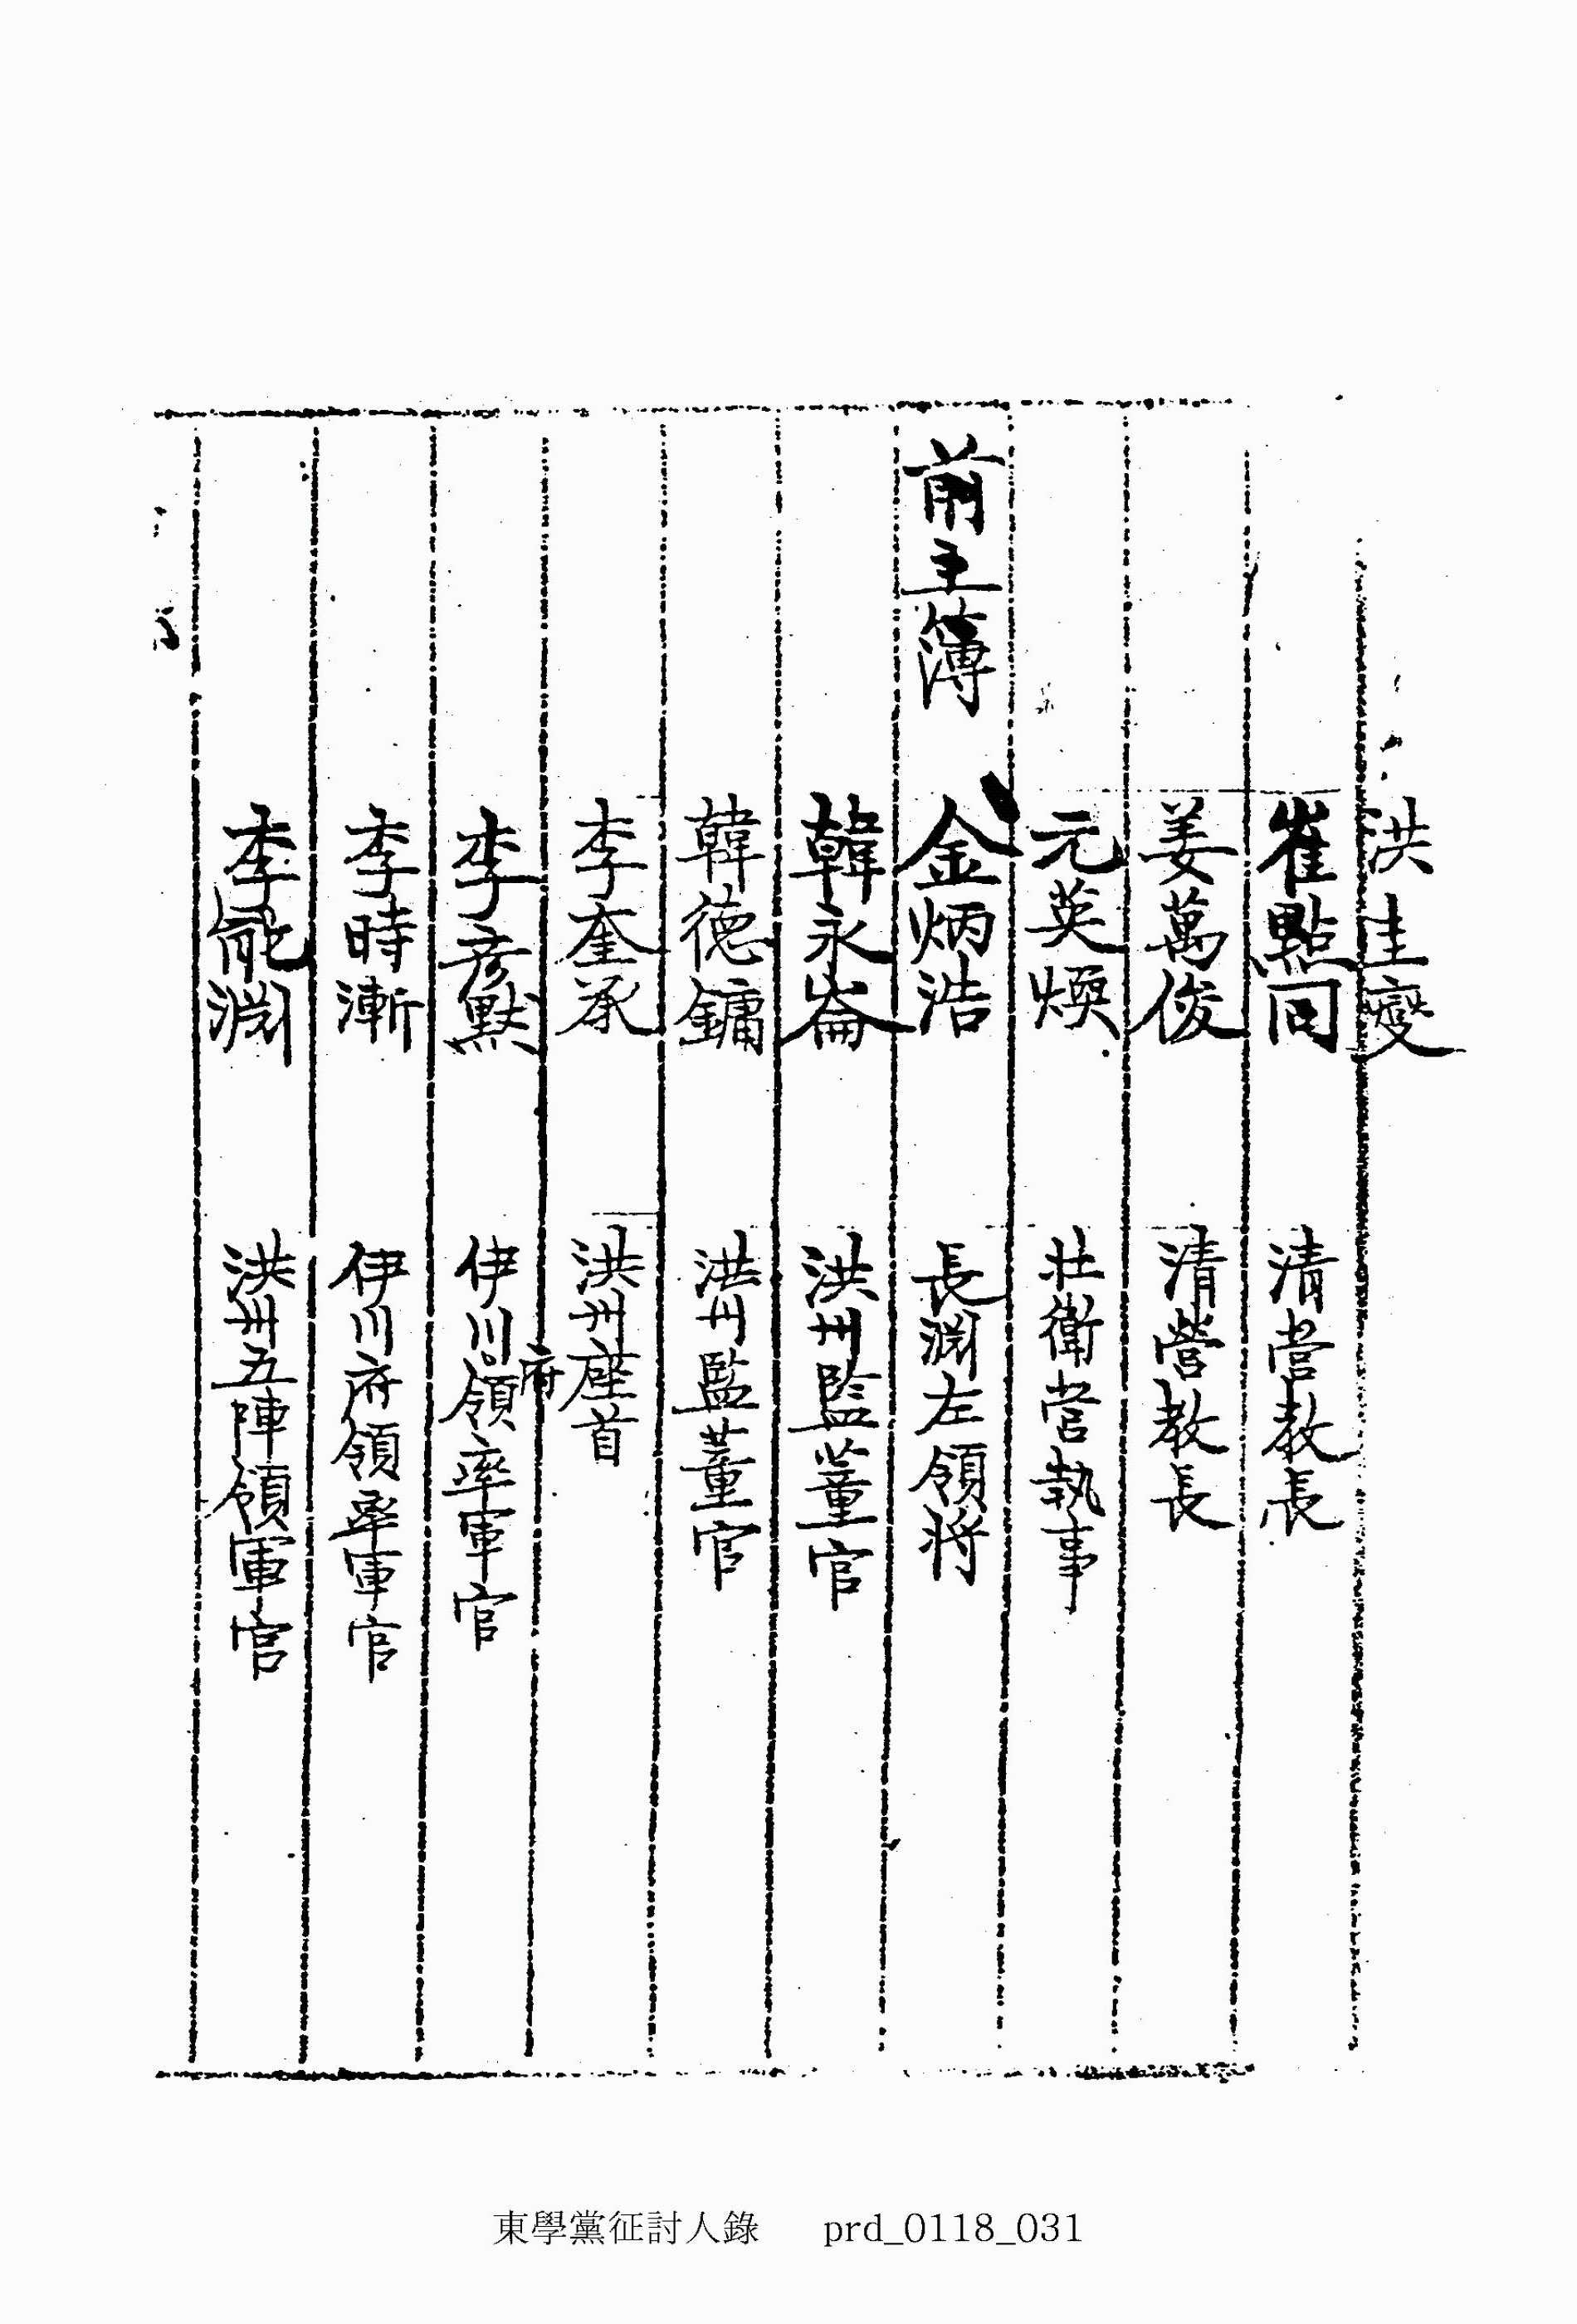 洪圭燮
崔點同 清營教長
姜萬俊 清營教長
元英煥 壯衛營執事
前主簿 金炳浩 長淵左領將
韓永崙 洪州監董官
韓德鏞 洪州監董官
李奎承 洪州座首
李彦默 伊川府領率軍官
李時漸 伊川府領率軍官
李能淵 洪州五陣領軍官
東學黨征討人錄 prd_0118_031